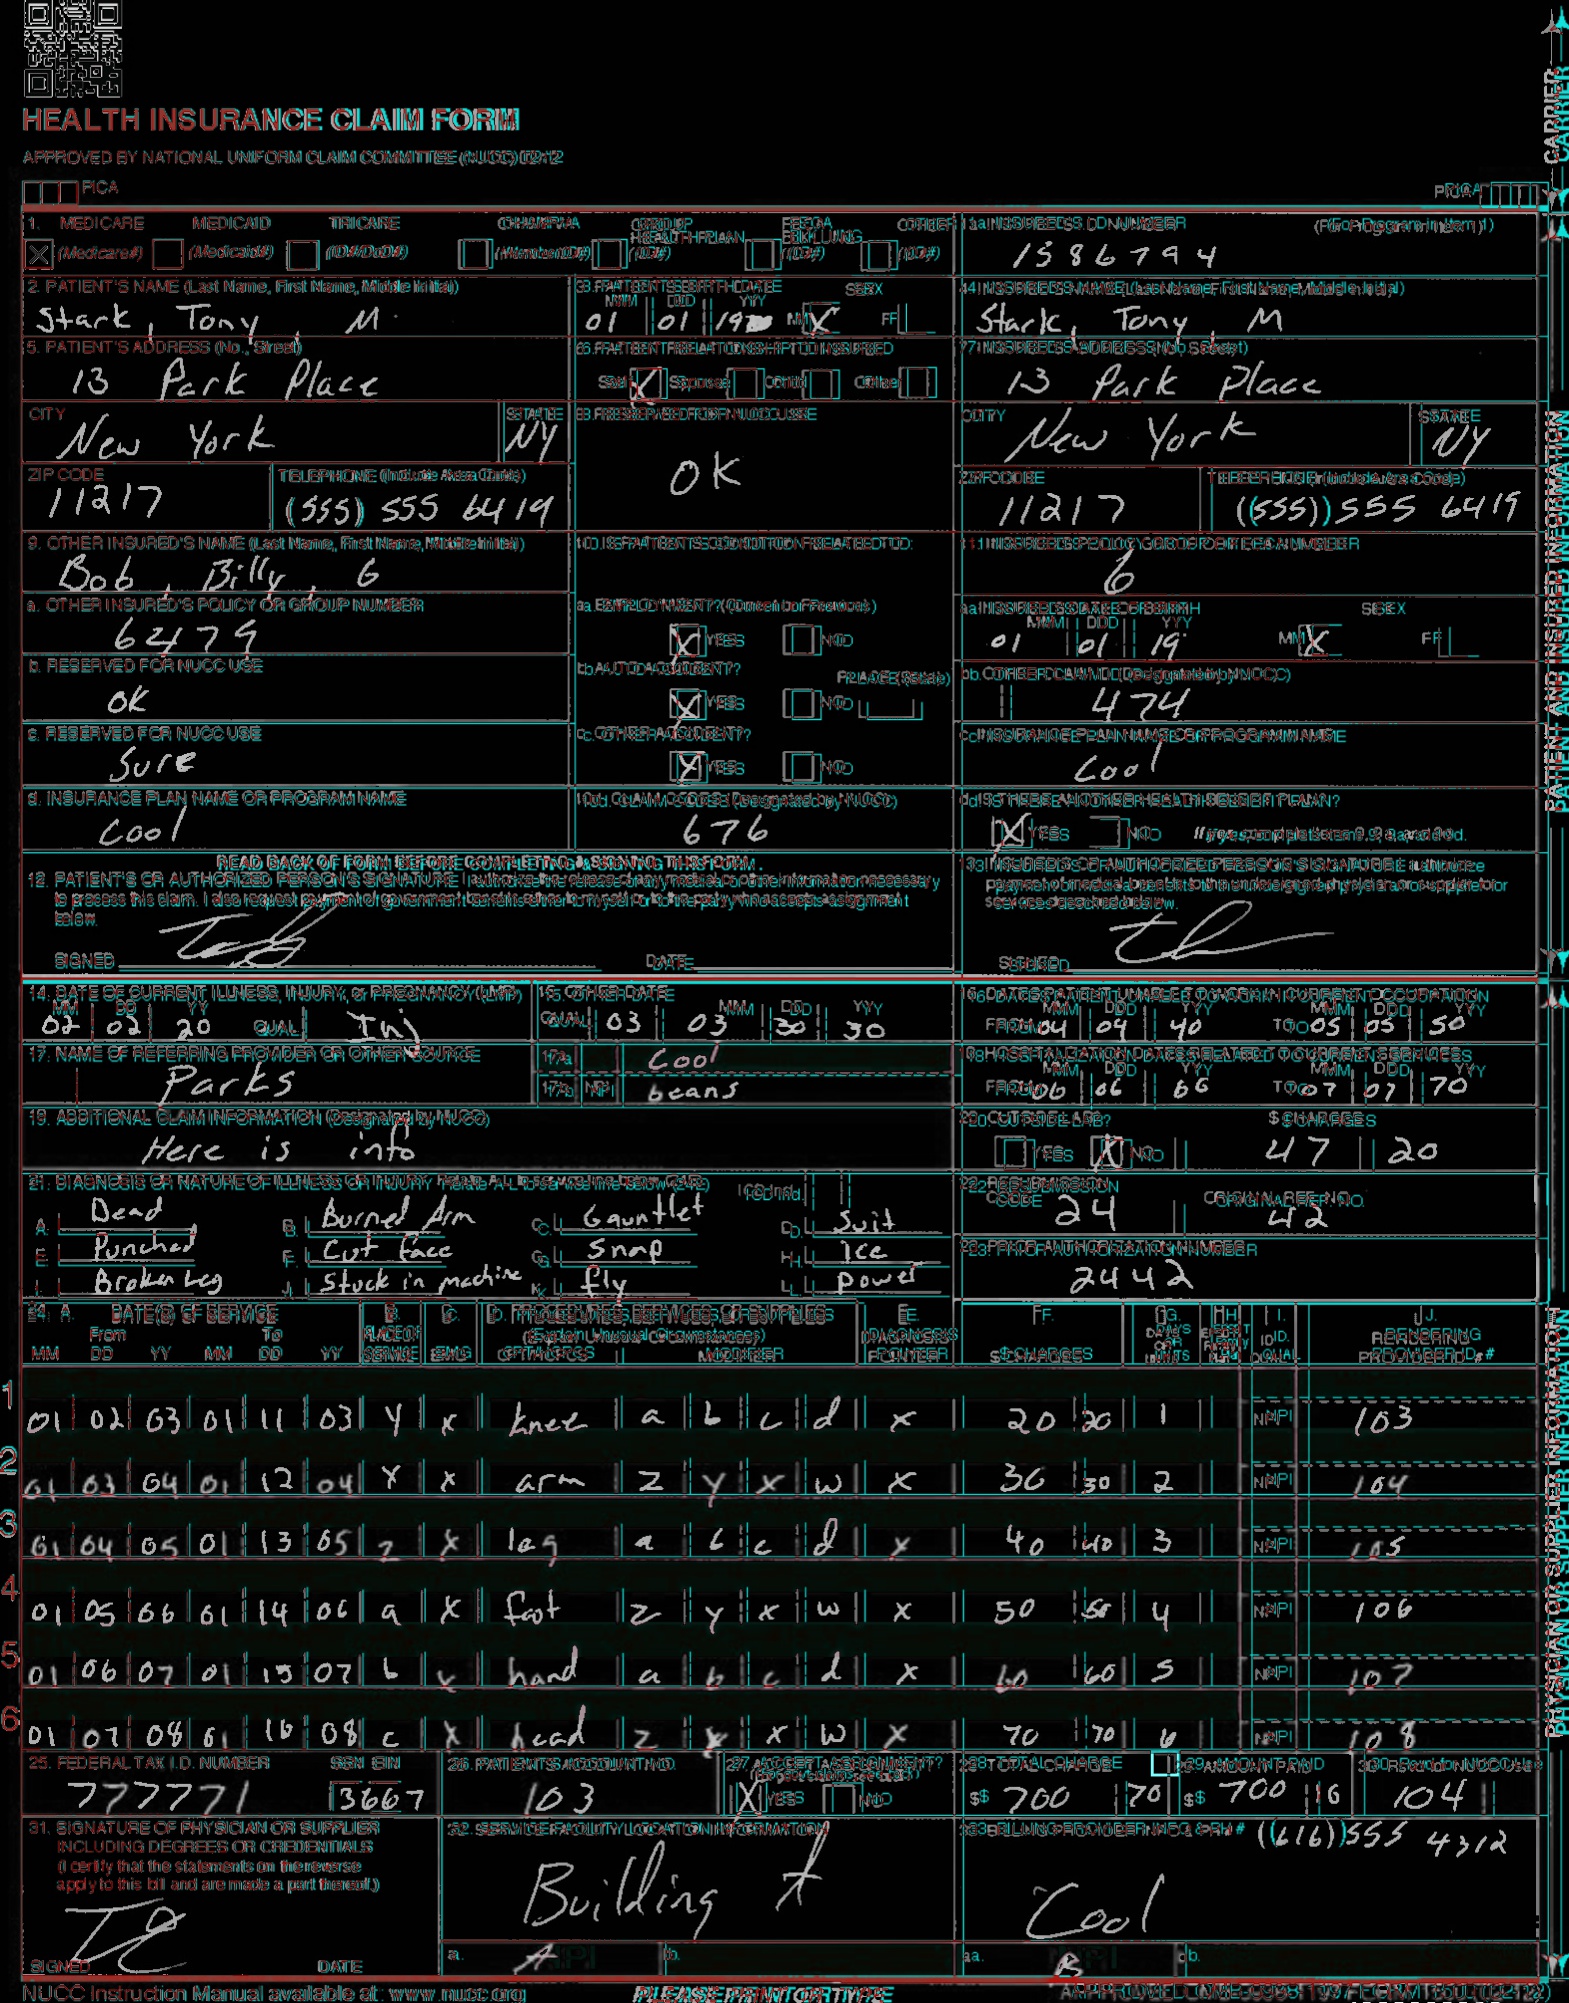 HEALTH INSURANCE CLAIM FORM
APPROVED BY NATIONAL UNIFORM CLAIM COMMITTEE (NUCC) 02/12
PICA
PICA
CARRIER
1. MEDICARE MEDICAID TRICARE CHAMPVA GROUP HEALTH PLAN FECA BLK LUNG OTHER
(Medicare#) (Medicaid#) (ID#/DoD#) (Member ID#) (ID#) (ID#) (ID#)
1a. INSURED'S I.D. NUMBER (For Program in Item 1)
1586794
2. PATIENT'S NAME (Last Name, First Name, Middle Initial)
Stark, Tony, M
3. PATIENT'S BIRTH DATE SEX
MM DD YY
01 01 M X F
4. INSURED'S NAME (Last Name, First Name, Middle Initial)
Stark, Tony, M
5. PATIENT'S ADDRESS (No., Street)
13 Park Place
6. PATIENT RELATIONSHIP TO INSURED
Self X Spouse Child Other
7. INSURED'S ADDRESS (No., Street)
13 Park Place
CITY STATE
New York NY
8. RESERVED FOR NUCC USE
OK
CITY STATE
New York NY
ZIP CODE TELEPHONE (Include Area Code)
11217 (555) 555 6419
ZIP CODE TELEPHONE (Include Area Code)
11217 (555) 555 6419
9. OTHER INSURED'S NAME (Last Name, First Name, Middle Initial)
Bob, Billy, G
10. IS PATIENT'S CONDITION RELATED TO:
11. INSURED'S POLICY GROUP OR FECA NUMBER
6
a. OTHER INSURED'S POLICY OR GROUP NUMBER
62479
a. EMPLOYMENT? (Current or Previous)
X YES NO
a. INSURED'S DATE OF BIRTH SEX
MM DD YY
01 01 19 M X F
b. RESERVED FOR NUCC USE
OK
b. AUTO ACCIDENT? PLACE (State)
X YES NO
b. OTHER CLAIM ID (Designated by NUCC)
474
c. RESERVED FOR NUCC USE
Sure
c. OTHER ACCIDENT?
X YES NO
c. INSURANCE PLAN NAME OR PROGRAM NAME
Cool
d. INSURANCE PLAN NAME OR PROGRAM NAME
Cool
10d. CLAIM CODES (Designated by NUCC)
676
d. IS THERE ANOTHER HEALTH BENEFIT PLAN?
X YES NO If yes, complete items 9, 9a, and 9d.
READ BACK OF FORM BEFORE COMPLETING & SIGNING THIS FORM.
12. PATIENT'S OR AUTHORIZED PERSON'S SIGNATURE I authorize the release of any medical or other information necessary
to process this claim. I also request payment of government benefits either to myself or to the party who accepts assignment
below.
SIGNED DATE
13. INSURED'S OR AUTHORIZED PERSON'S SIGNATURE I authorize
payment of medical benefits to the undersigned physician or supplier for
services described below.
SIGNED
PATIENT AND INSURED INFORMATION
14. DATE OF CURRENT ILLNESS, INJURY, or PREGNANCY (LMP)
MM DD YY
02 02 20 QUAL. Inj
15. OTHER DATE
MM DD YY
QUAL. 03 03 30 30
16. DATES PATIENT UNABLE TO WORK IN CURRENT OCCUPATION
MM DD YY MM DD YY
FROM 04 04 40 TO 05 05 50
17. NAME OF REFERRING PROVIDER OR OTHER SOURCE
Parks
17a. Cool
17b. NPI beans
18. HOSPITALIZATION DATES RELATED TO CURRENT SERVICES
MM DD YY MM DD YY
FROM 06 06 66 TO 07 07 70
19. ADDITIONAL CLAIM INFORMATION (Designated by NUCC)
Here is info
20. OUTSIDE LAB? $ CHARGES
YES X NO 47 20
21. DIAGNOSIS OR NATURE OF ILLNESS OR INJURY Relate A-L to service line below (24E) ICD Ind.
A. Dead B. Burned Arm C. Gauntlet D. Suit
E. Punched F. Cut face G. Snap H. Ice
I. Broken leg J. Stuck in machine K. fly L. power
22. RESUBMISSION CODE ORIGINAL REF. NO.
24 42
23. PRIOR AUTHORIZATION NUMBER
2442
24. A. DATE(S) OF SERVICE B. C. D. PROCEDURES, SERVICES, OR SUPPLIES E. F. G. H. I. J.
From To PLACE OF (Explain Unusual Circumstances) DIAGNOSIS DAYS OR UNITS ID. RENDERING
MM DD YY MM DD YY SERVICE EMG CPT/HCPCS MODIFIER POINTER $ CHARGES QUAL. PROVIDER ID. #
1 01 02 03 01 11 03 y x knee a b c d x 20 20 1 NPI 103
2 01 03 04 01 12 04 x x arm z y x w x 30 30 2 NPI 104
3 01 04 05 01 13 05 z x leg a b c d x 40 40 3 NPI 105
4 01 05 06 01 14 06 a x foot z y x w x 50 50 4 NPI 106
5 01 06 07 01 15 07 b x hand a b c d x 60 60 5 NPI 107
6 01 07 08 01 16 08 c x head z y x w x 70 70 6 NPI 108
25. FEDERAL TAX I.D. NUMBER SSN EIN
777771 3667
26. PATIENT'S ACCOUNT NO.
103
27. ACCEPT ASSIGNMENT?
X YES NO
28. TOTAL CHARGE
$ 700 70
29. AMOUNT PAID
$ 700 16
30. Rsvd for NUCC Use
104
31. SIGNATURE OF PHYSICIAN OR SUPPLIER
INCLUDING DEGREES OR CREDENTIALS
(I certify that the statements on the reverse
apply to this bill and are made a part thereof.)
SIGNED DATE
32. SERVICE FACILITY LOCATION INFORMATION
Building A
a. A b.
33. BILLING PROVIDER INFO & PH # (616) 555 4312
Cool
a. B b.
PHYSICIAN OR SUPPLIER INFORMATION
NUCC Instruction Manual available at: www.nucc.org
PLEASE PRINT OR TYPE